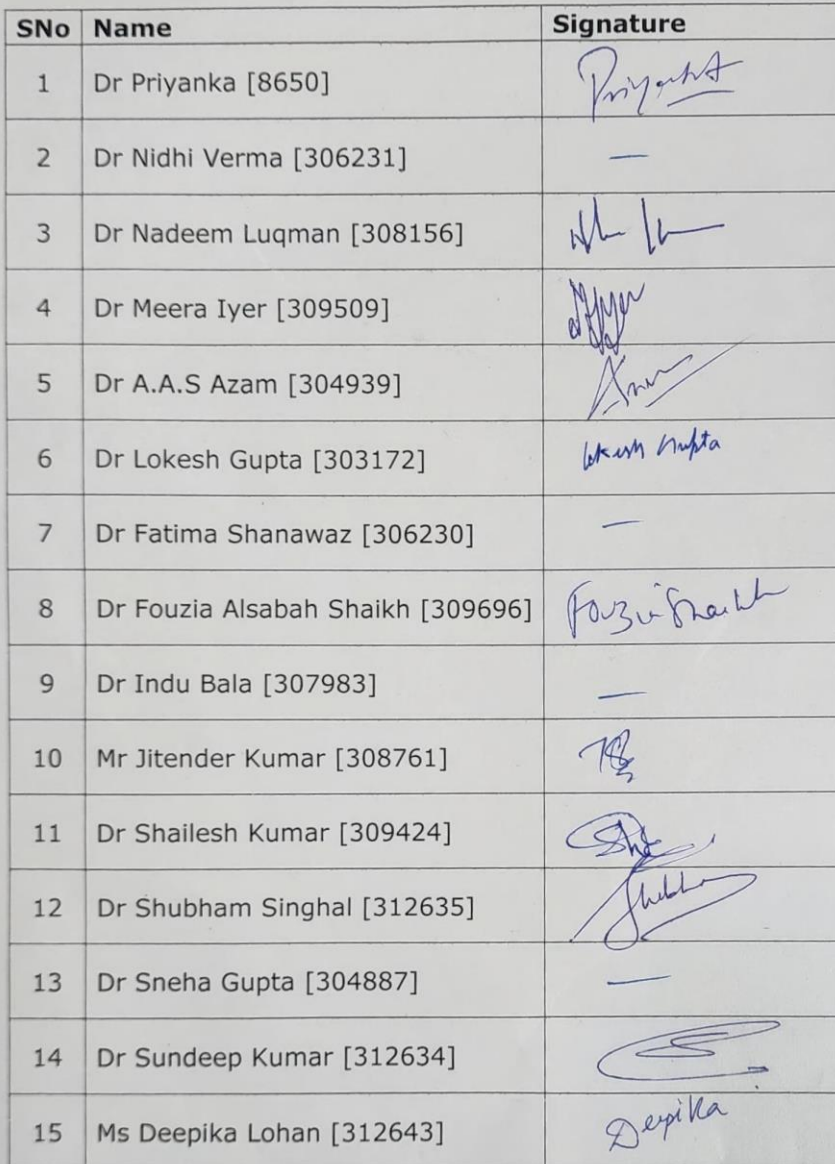 SNo Name Signature
1 Dr Priyanka [8650] Priyanka
2 Dr Nidhi Verma [306231] —
3 Dr Nadeem Luqman [308156]
4 Dr Meera Iyer [309509]
5 Dr A.A.S Azam [304939]
6 Dr Lokesh Gupta [303172] Lokesh Gupta
7 Dr Fatima Shanawaz [306230] —
8 Dr Fouzia Alsabah Shaikh [309696] Fouzia Shaikh
9 Dr Indu Bala [307983] —
10 Mr Jitender Kumar [308761]
11 Dr Shailesh Kumar [309424]
12 Dr Shubham Singhal [312635]
13 Dr Sneha Gupta [304887] —
14 Dr Sundeep Kumar [312634]
15 Ms Deepika Lohan [312643] Deepika